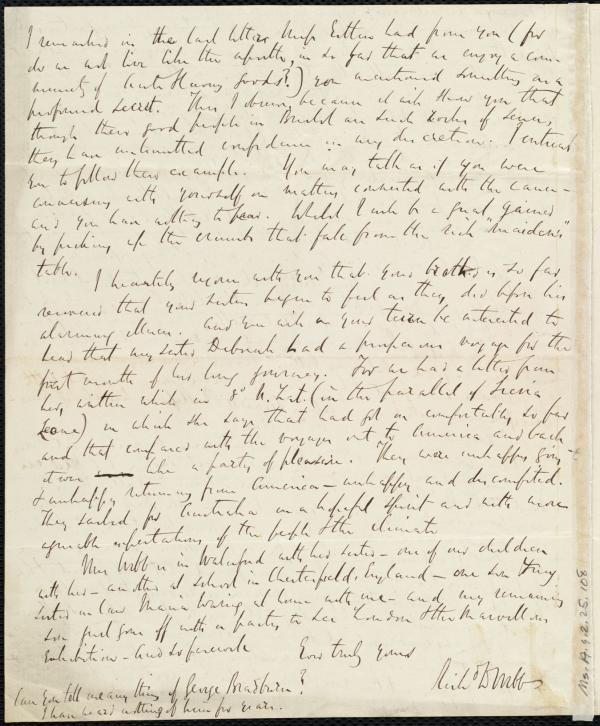 I remarked in the last letter Miss Estlin had from you (for
do we not live like the apostles, in so far that we enjoy a com-
munity of Anti Slavery goods?) you mentioned something as a
profound secret. This I observe because it will shew you that
though these good people in Bristol are such rocks of sense,
they have unlimited confidence in my discretion. I entreat
you to follow their example. You may talk as if you were
conversing with yourself on matters connected with the cause -
and you have nothing to fear. Whilst I will be a great gainer
by picking up the crumbs that fall from the rich "maiden's"
table.
I heartily rejoice with you that your brother is so far
recovered that your sisters begin to feel as they did before his
alarming illness. And you will in your turn be interested to
hear that my sister Deborah had a prosperous voyage for the
first month of her long journey. For we had a letter from
her, written while in 8° N. Lat. (in the parallel of Sierra
Leone) in which she says that had got on comfortably so far
and that compared with the voyages out to America and back
it were like a party of pleasure. They were unhappy going
& unhappy returning from America - unhappy and discomforted.
They sailed for Australia in a hopeful spirit and with more
agreeable expectations of the people & the climate
Mrs Webb is in Waterford with her sister - one of our children
with her - another at school in Chesterfield, England - one son &amp; my
sister in law Maria Waring at home with me - and my remaining
son just gone off with a party to see London & the marvellous
Exhibition - And so farewell
Ever truly yours
Richd D Webb
Can you tell me any thing of George Bradburn?
I have heard nothing of him for years.
Ms. A. 9. 2. 25. 108